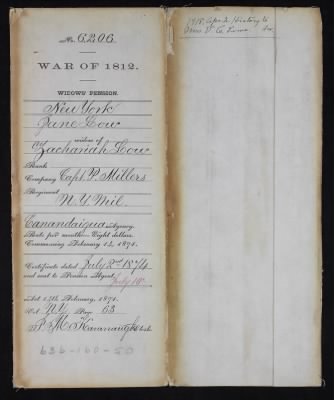 No. 6206
WAR OF 1812.
WIDOWS' PENSION.
New York
Jane Low
widow of
Zachariah Low
Rank
Company Capt. P. Millers
Regiment
N.Y. Mil.
Canandaigua Agency.
Rate per month, Eight dollars.
Commencing February 14, 1871.
Certificate dated July 2nd 1874
and sent to Pension Agent,
July 10
Act 14th February, 1871.
Vol. N.Y. Page 63
P. M. Kavanaugh Clerk.
636-160-50
1918. Apr. 2 History to
Mrs. V. C.